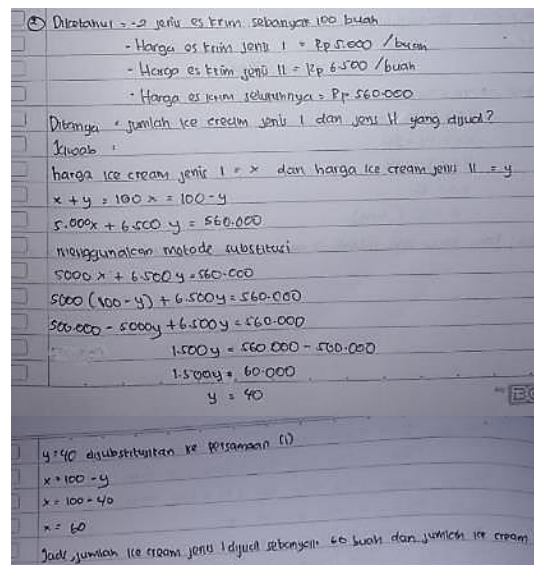 ② Diketahui = - 2 jenis es krim sebanyak 100 buah
- Harga es krim jenis I = Rp 5.000 /buah
- Harga es krim jenis II = Rp 6.500 /buah
- Harga es krim seluruhnya = Rp 560.000
Ditanya = jumlah ice cream jenis I dan jenis II yang dijual?
Jawab :
harga ice cream jenis I = x dan harga ice cream jenis II = y
x + y = 100 x = 100 - y
5.000x + 6.500 y = 560.000
menggunakan metode substitusi
5000 x + 6.500y = 560.000
5000 (100 - y) + 6.500y = 560.000
500.000 - 5000y + 6.500y = 560.000
1.500y = 560.000 - 500.000
1.500y = 60.000
y = 40
y = 40 disubstitusikan ke persamaan (1)
x = 100 - y
x = 100 - 40
x = 60
Jadi, jumlah ice cream jenis I dijual sebanyak 60 buah dan jumlah ice cream